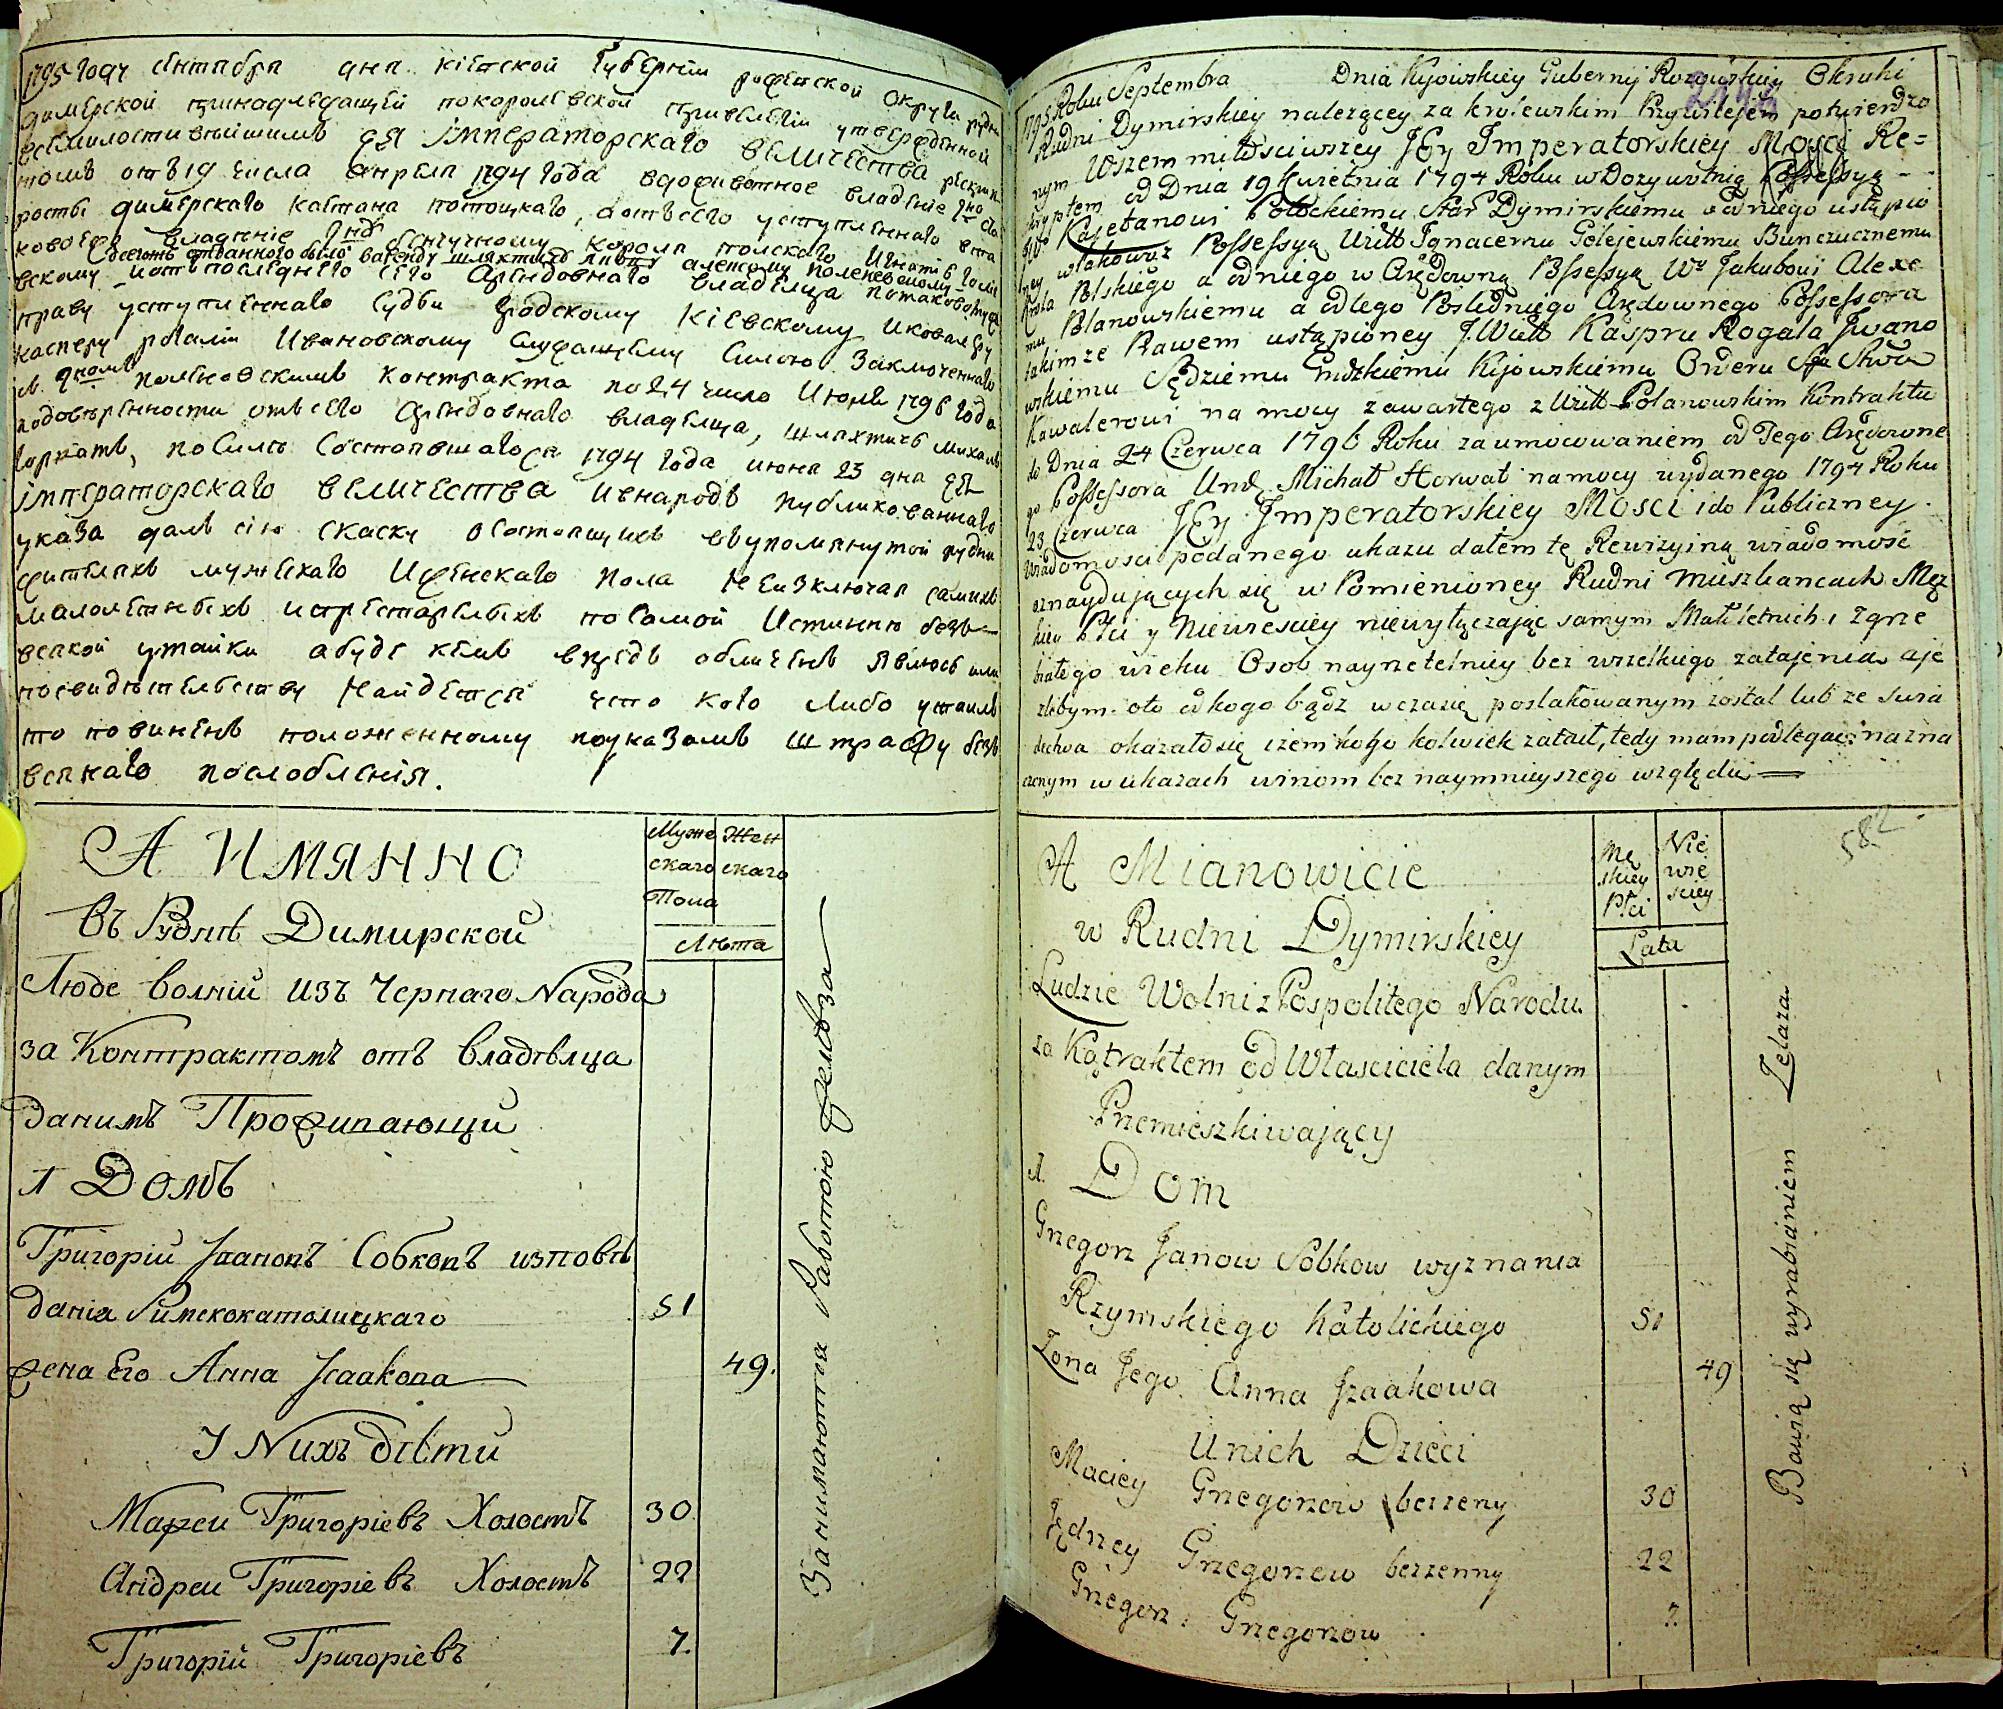 1795 году сентября дня кіевской губерніи рожевской округи рудни
димерской принадлежащей покоролевской привелегіи утвержденной
всемилостивейшимъ ея імператорскаго величества рескрип
томъ отъ 19 числа апреля 1794 года вдоживотное владеніе
росты димерскаго каетана потоцкаго, а отъ сего уступленнаго вта
ковое владеніе бунчучному короля полскаго Игнатію
вскому
праву уступленнаго судьи градскому кіевскому
касперу рогали Ивановскому
полановскимъ контракта по 24 число Июня 1796 года
подовъренности отъ сего арендовнаго владелца, шляхтичъ михалъ
горватъ, по силе состоявшагося 1794 года июня 23 дня ея
імператорскаго величества ивнародъ публикованнаго
указа далъ сію скаску осостоящихъ вупомянутой рудни
жителяхъ мужескаго Иженскаго пола неизключая самихъ
малолетныхъ ипрестарелыхъ посамой Истинне безъ
всякой утайки абуде кемъ впредь обличенъ явлюсь или
посвидетелству найдется что кого либо утаилъ
то повиненъ положенному поуказамъ штрафу безъ
всякаго послобленія.
А ИМЯННО
Муже Жен
скаго скаго
Пола
Лѣта
въ Руднѣ Димирской
Люде волній изъ Чернаго Народа
за Контрактомъ отъ владѣлца
данимъ Проживающи
1 Домъ
Григорій Јвановъ Собковъ изповѣ
данія Римскокатолицкаго 51
жена Его Анна Јсаакова 49.
У Nихъ дѣти
Марѳеи Григоріевъ Холостъ 30
Андреи Григоріевъ Холостъ 22
Григорій Григоріевъ 7.
Занимаются Работою желѣза
1795 Roku Septembra Dnia Kijowskiey Gubernij Rozowskiey Okruhi
Rudni Dymirskiey nalezącey za krolewskim Przywilejem potwierdzo
nym Wszem miłosciwszey JEy Imperatorskiey Mosci Re=
skryptem od Dnia 19 Kwietnia 1794 Roku w Dozywotnią Possessyą
Kajetanowi Potockiemu Star Dymirskiemu a od niego ustąpio
ney w takowąz Possessyą Ignacemu Golejewskiemu Bunczucznemu
Krola Polskiego a odniego w Arędowną Possessyą Jakubowi Alexe
mu Polanowskiemu a odtego Posledniego Arędownego Possessora
takimze Prawem ustąpioney Kaspru Rogala Jwano
wskiemu Sędziemu Grodzkiemu Kijowskiemu Orderu
Kawalerowi na mocy zawartego z Polanowskim Kontraktu
do Dnia 24 Czerwca 1796 Roku za umocowaniem od Tego Arędowne
go Possessora Michał Horwat na mocy wydanego 1794 Roku
23 Czerwca JEy Imperatorskiey Mosci i do Publiczney
Wiadomosci podanego ukazu dałem tę Rewizyiną wiadomość
oznaydujących się w Pomienioney Rudni Mieszkancach Męz
kiey Płci y Niewieściey niewyłączając samym Małoletnich i zgrze
białego wieku Osob nayrzetelniey bez wszelkiego zatajenia aje
zlibym oto odkogo bądz wczasie poslakowanym został lub ze swia
dectwa okazałosię iżem kogo kolwiek zataił, tedy mam podlegać nazna
czonym w ukazach winom bez naymnieyszego względu
A Mianowicie
Mę
skiey
Płci
Nie
wie
sciey
Lata
582
w Rudni Dymirskiey
Ludzie Wolni z Pospolitego Narodu
za Kątraktem od Właściciela danym
Przemieszkiwający
1. Dom
Grzegorz Janow Sobkow wyznania
Rzymskiego Katolickiego 51
Zona Jego Anna Jzaakowa 49
U nich Dzieci
Maciey Grzegorzow bezzeny 30
Jędrzey Grzegorzow bezzenny 22
Grzegorz Grzegorzow 7.
Bawią się wyrabianiem Zelaza